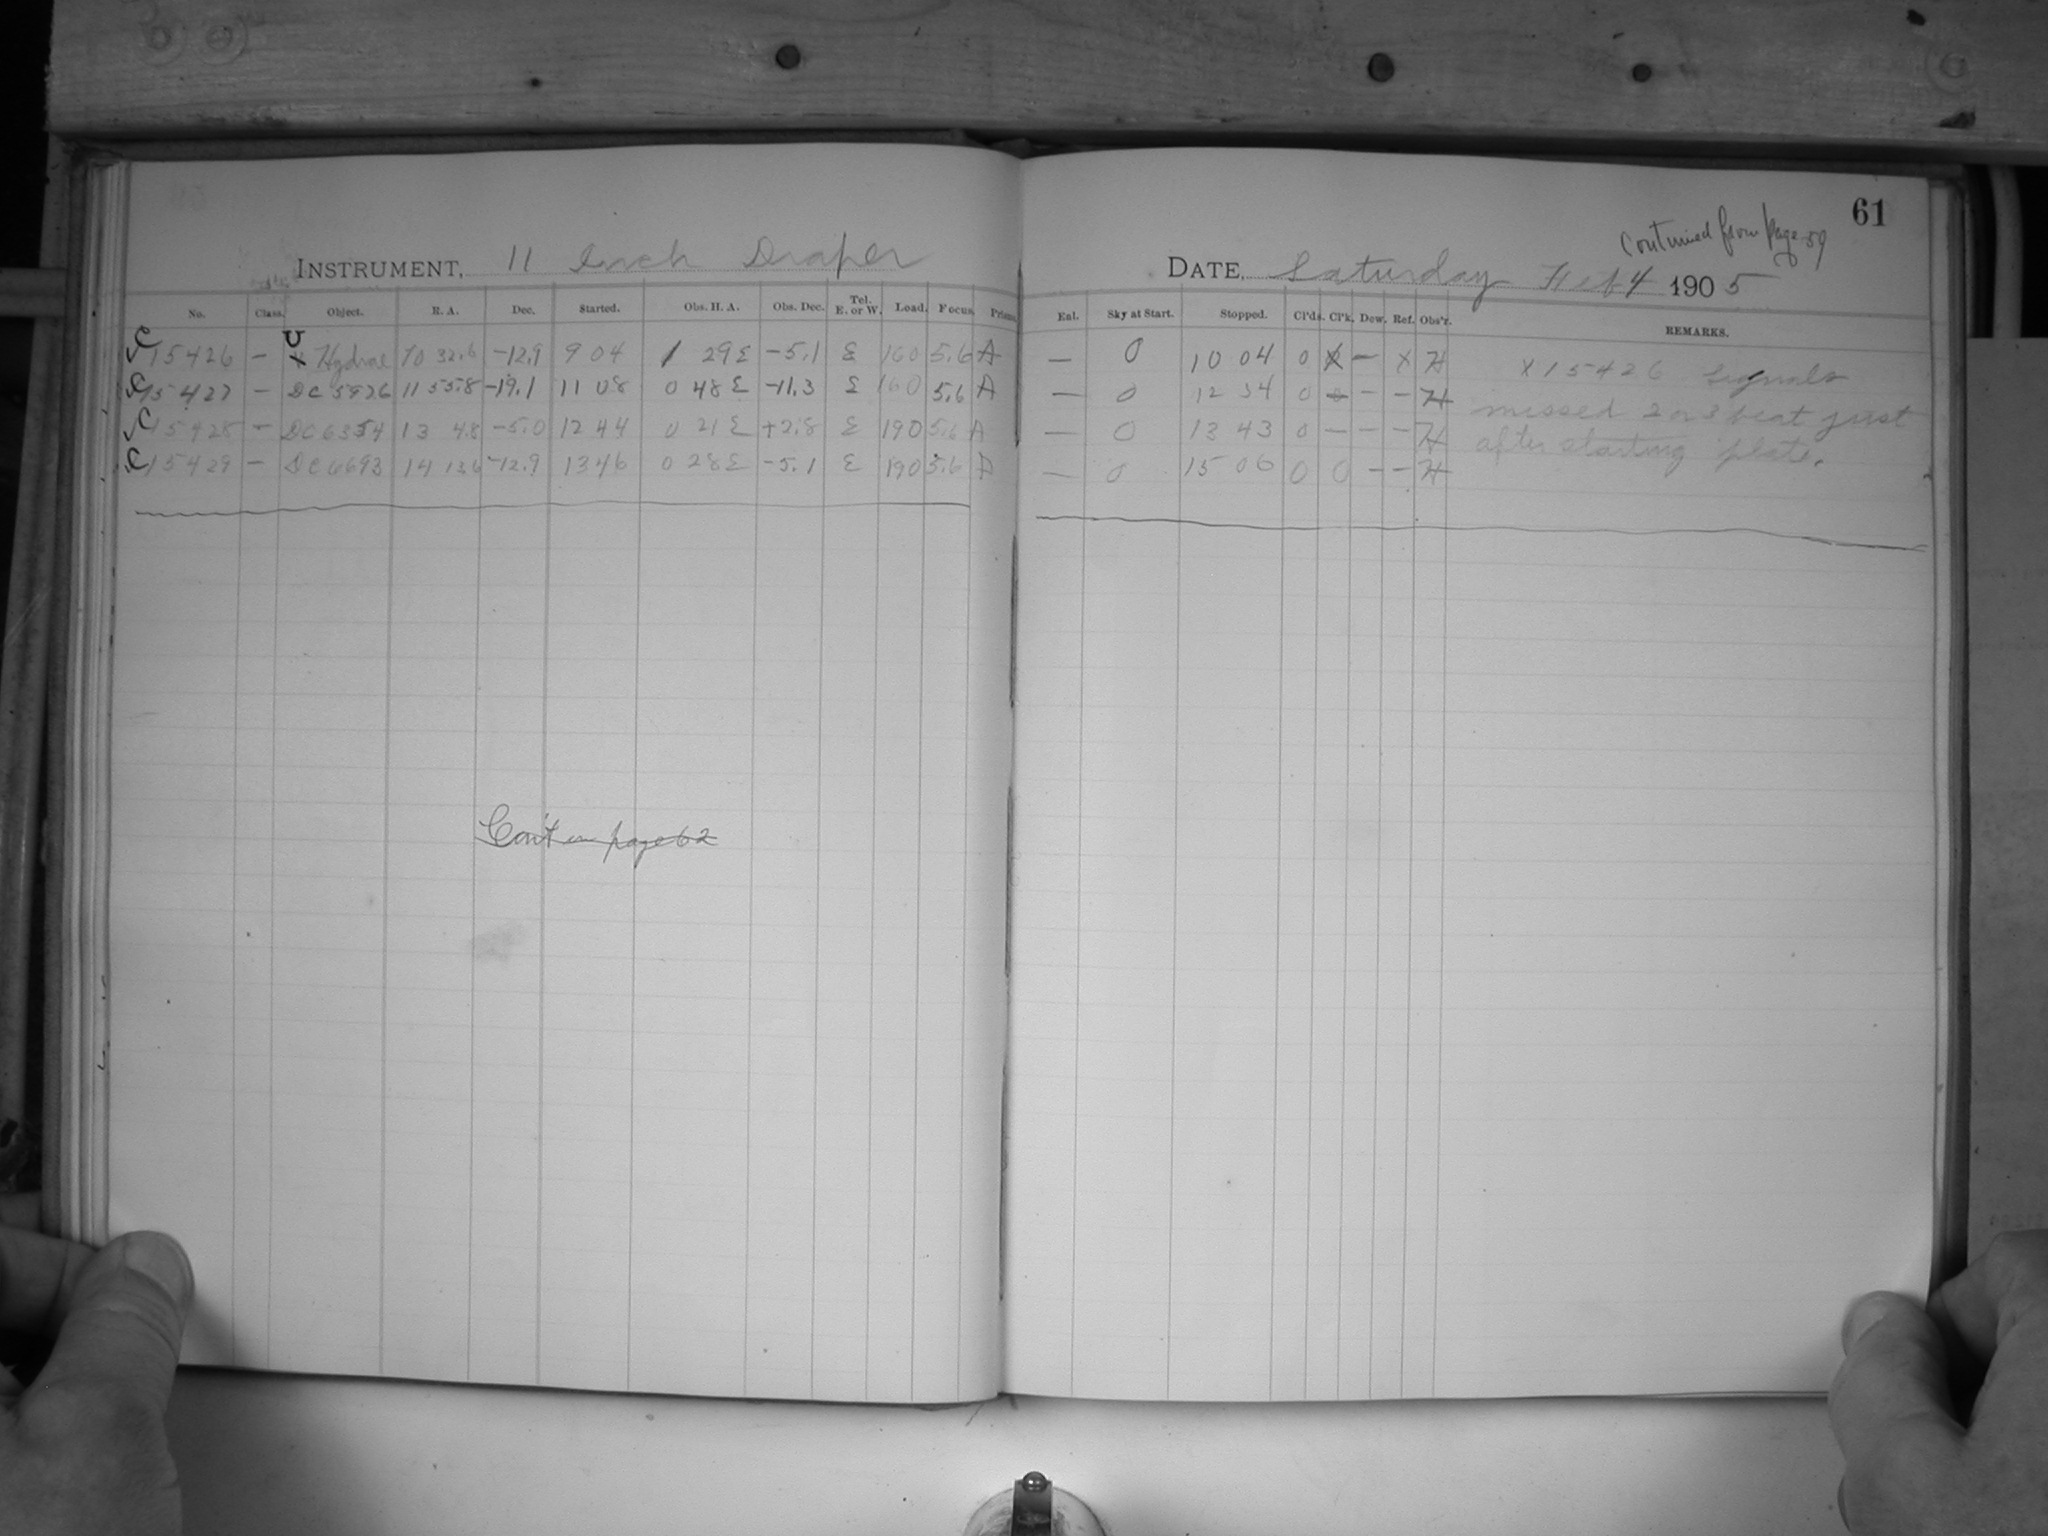 61
Continued from page 59
INSTRUMENT, 11 Inch Draper DATE, Saturday Feb 4 1905
No. Class. Object. R. A. Dec. Started. Obs. H. A. Obs. Dec. Tel. E. or W. Load. Focus. Prisms. Eal. Sky at Start. Stopped. Cl'ds. Cl'k. Dew. Ref. Obs'r. REMARKS.
C 15426 — U Hydrae 10 32.6 -12.9 9 04 1 29 E -5.1 E 160 5.6 A — 0 10 04 0 X — X H X 15426 Signals
C 15427 — DC 5926 11 55.8 -19.1 11 08 0 48 E -11.3 E 160 5.6 A — 0 12 34 0 — — H missed 2 or 3 beat just
C 15428 — DC 6354 13 4.8 -5.0 12 44 0 21 E +2.8 E 190 5.6 A — 0 13 43 0 — — — H after starting plate.
C 15429 — DC 6693 14 13.6 -12.9 13 46 0 28 E -5.1 E 190 5.6 A — 0 15 06 0 0 — — H
Con't on page 62